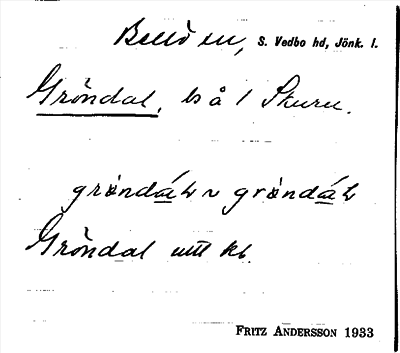 Bellö sn, S. Vedbo hd, Jönk. l.
Gröndal, ls å 1 Skuru.
gröndáł ~ gröndáł
Gröndal utt kl.
FRITZ ANDERSSON 1933